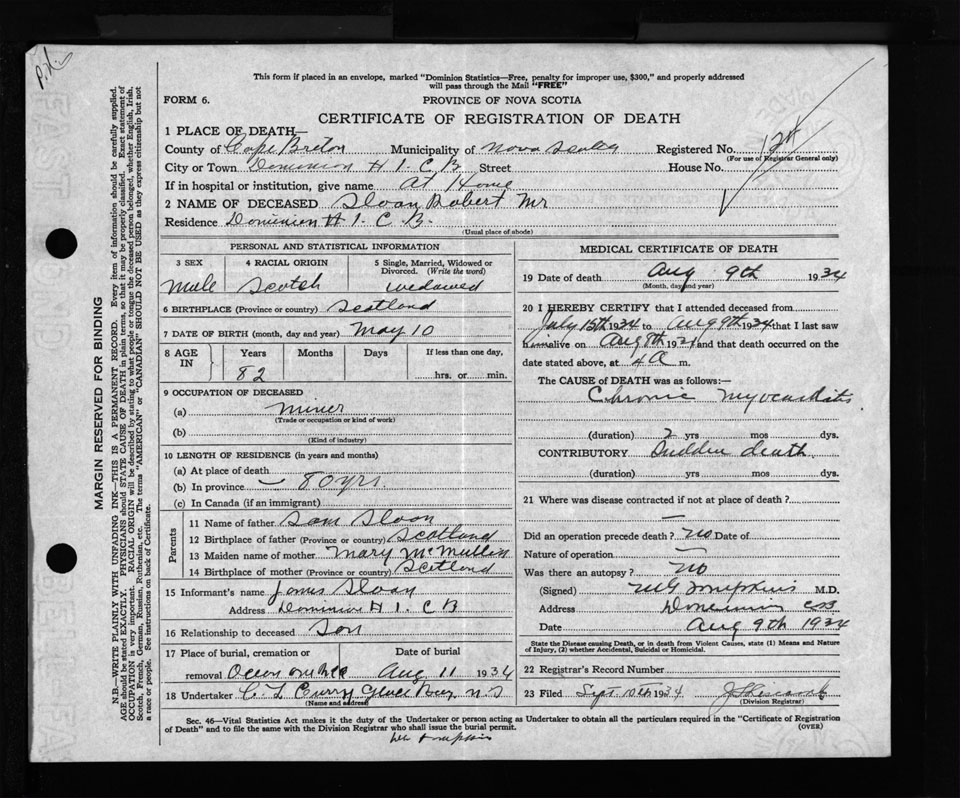 This form if placed in an envelope, marked "Dominion Statistics—Free, penalty for improper use, $300," and properly addressed
will pass through the Mail "FREE"
FORM 6.
PROVINCE OF NOVA SCOTIA
CERTIFICATE OF REGISTRATION OF DEATH
MARGIN RESERVED FOR BINDING
N.B.—WRITE PLAINLY WITH UNFADING INK—THIS IS A PERMANENT RECORD. Every item of information should be carefully supplied.
AGE should be stated EXACTLY. PHYSICIANS should STATE CAUSE OF DEATH in plain terms, so that it may be properly classified. Exact statement of
OCCUPATION is very important. RACIAL ORIGIN will be described by stating to what people or tongue the deceased person belonged, whether English, Irish,
Scotch, French, German, Russian, Ruthenian, etc. The terms "AMERICAN" or "CANADIAN" SHOULD NOT BE USED as they express citizenship but not
a race or people. See instructions on back of Certificate.
1 PLACE OF DEATH—
County of Cape Breton Municipality of Nova Scotia Registered No.
(For use of Registrar General only)
City or Town Dominion # 1. C B Street House No.
If in hospital or institution, give name At Home
2 NAME OF DECEASED Sloan Robert Mr
Residence Dominion # 1. C. B.
(Usual place of abode)
PERSONAL AND STATISTICAL INFORMATION
3 SEX 4 RACIAL ORIGIN 5 Single, Married, Widowed or
Divorced. (Write the word)
Male Scotch Widowed
6 BIRTHPLACE (Province or country) Scotland
7 DATE OF BIRTH (month, day and year) May 10
8 AGE IN Years Months Days If less than one day,
82 hrs. or min.
9 OCCUPATION OF DECEASED
(a) Miner
(Trade or occupation or kind of work)
(b)
(Kind of industry)
10 LENGTH OF RESIDENCE (in years and months)
(a) At place of death
(b) In province — 80 yrs.
(c) In Canada (if an immigrant)
Parents
11 Name of father Sam Sloan
12 Birthplace of father (Province or country) Scotland
13 Maiden name of mother Mary McMullin
14 Birthplace of mother (Province or country) Scotland
15 Informant's name James Sloan
Address Dominion # 1. C B
16 Relationship to deceased Son
17 Place of burial, cremation or Date of burial
removal Aug 11 1934
18 Undertaker C. L Curry Glace Bay N.S
(Name and address)
MEDICAL CERTIFICATE OF DEATH
19 Date of death Aug 9th 1934
(Month, day and year)
20 I HEREBY CERTIFY that I attended deceased from
July 15th 1934 to Aug 9th 1934 that I last saw
him alive on Aug 8th 1934 and that death occurred on the
date stated above, at 4 a m.
The CAUSE OF DEATH was as follows:—
Chronic Myocarditis
(duration) 2 yrs mos dys.
CONTRIBUTORY Sudden death
(duration) yrs mos dys.
21 Where was disease contracted if not at place of death?
—
Did an operation precede death? No Date of
Nature of operation —
Was there an autopsy? No
(Signed) Tompkins M.D.
Address Dominion CB
Date Aug 9th 1934
State the Disease causing Death, or in death from Violent Causes, state (1) Means and Nature
of Injury, (2) whether Accidental, Suicidal or Homicidal.
22 Registrar's Record Number
23 Filed Sept. 1934
(Division Registrar)
Sec. 46—Vital Statistics Act makes it the duty of the Undertaker or person acting as Undertaker to obtain all the particulars required in the "Certificate of Registration
of Death" and to file the same with the Division Registrar who shall issue the burial permit.
(OVER)
Tompkins